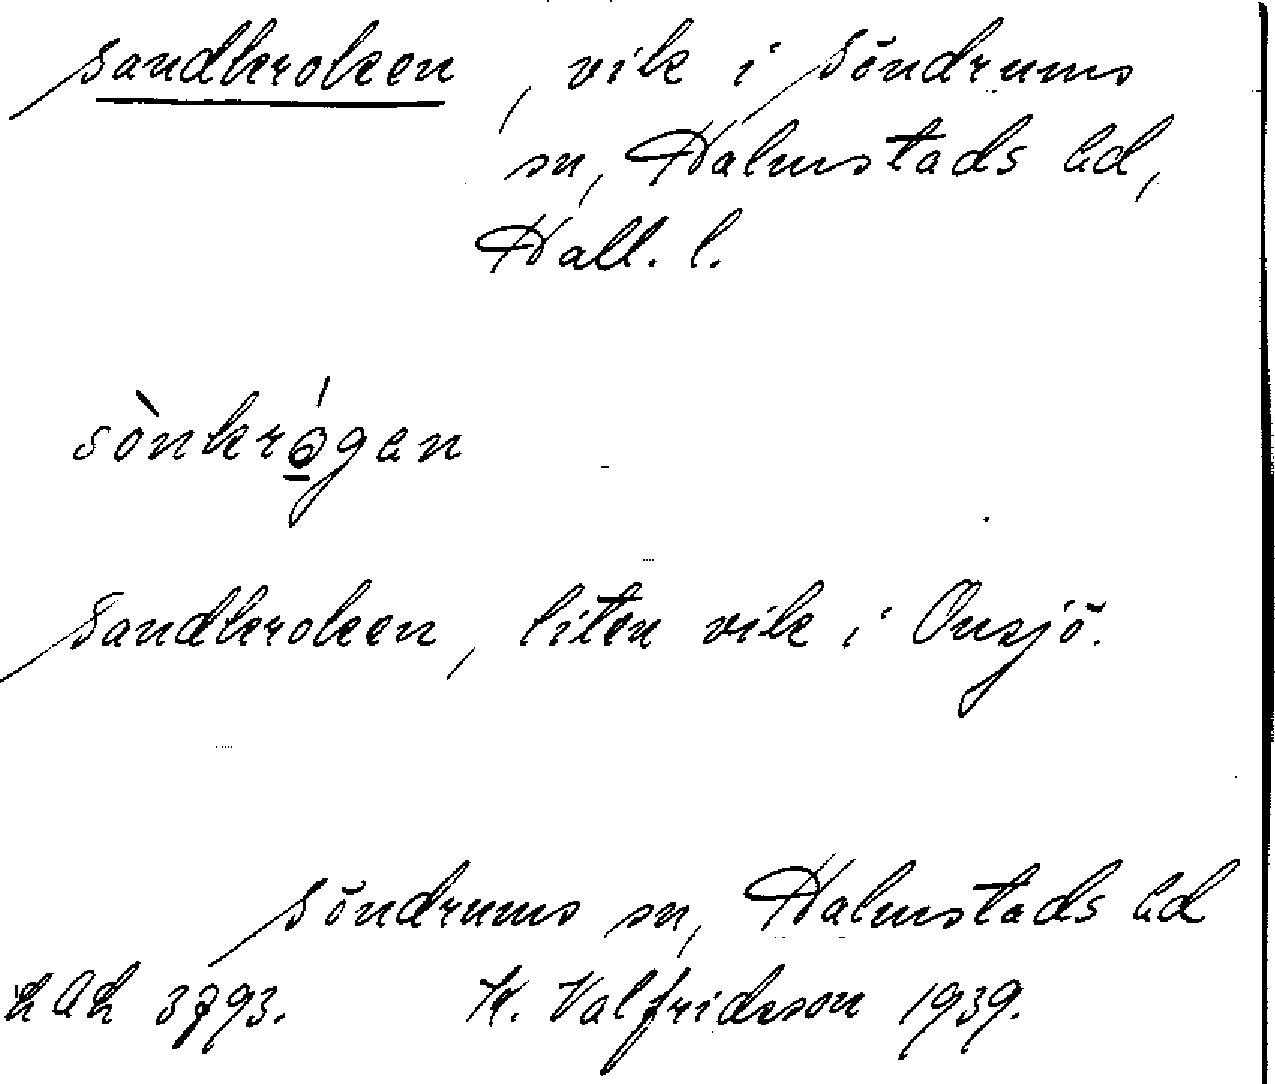 Sandkroken, vik i Söndrums
sn, Halmstads hd,
Hall. l.
sònkrógen
Sandkroken, liten vik i Onsjö.
Söndrums sn, Halmstads hd
LAL 3793. K. Valfridsson 1939.